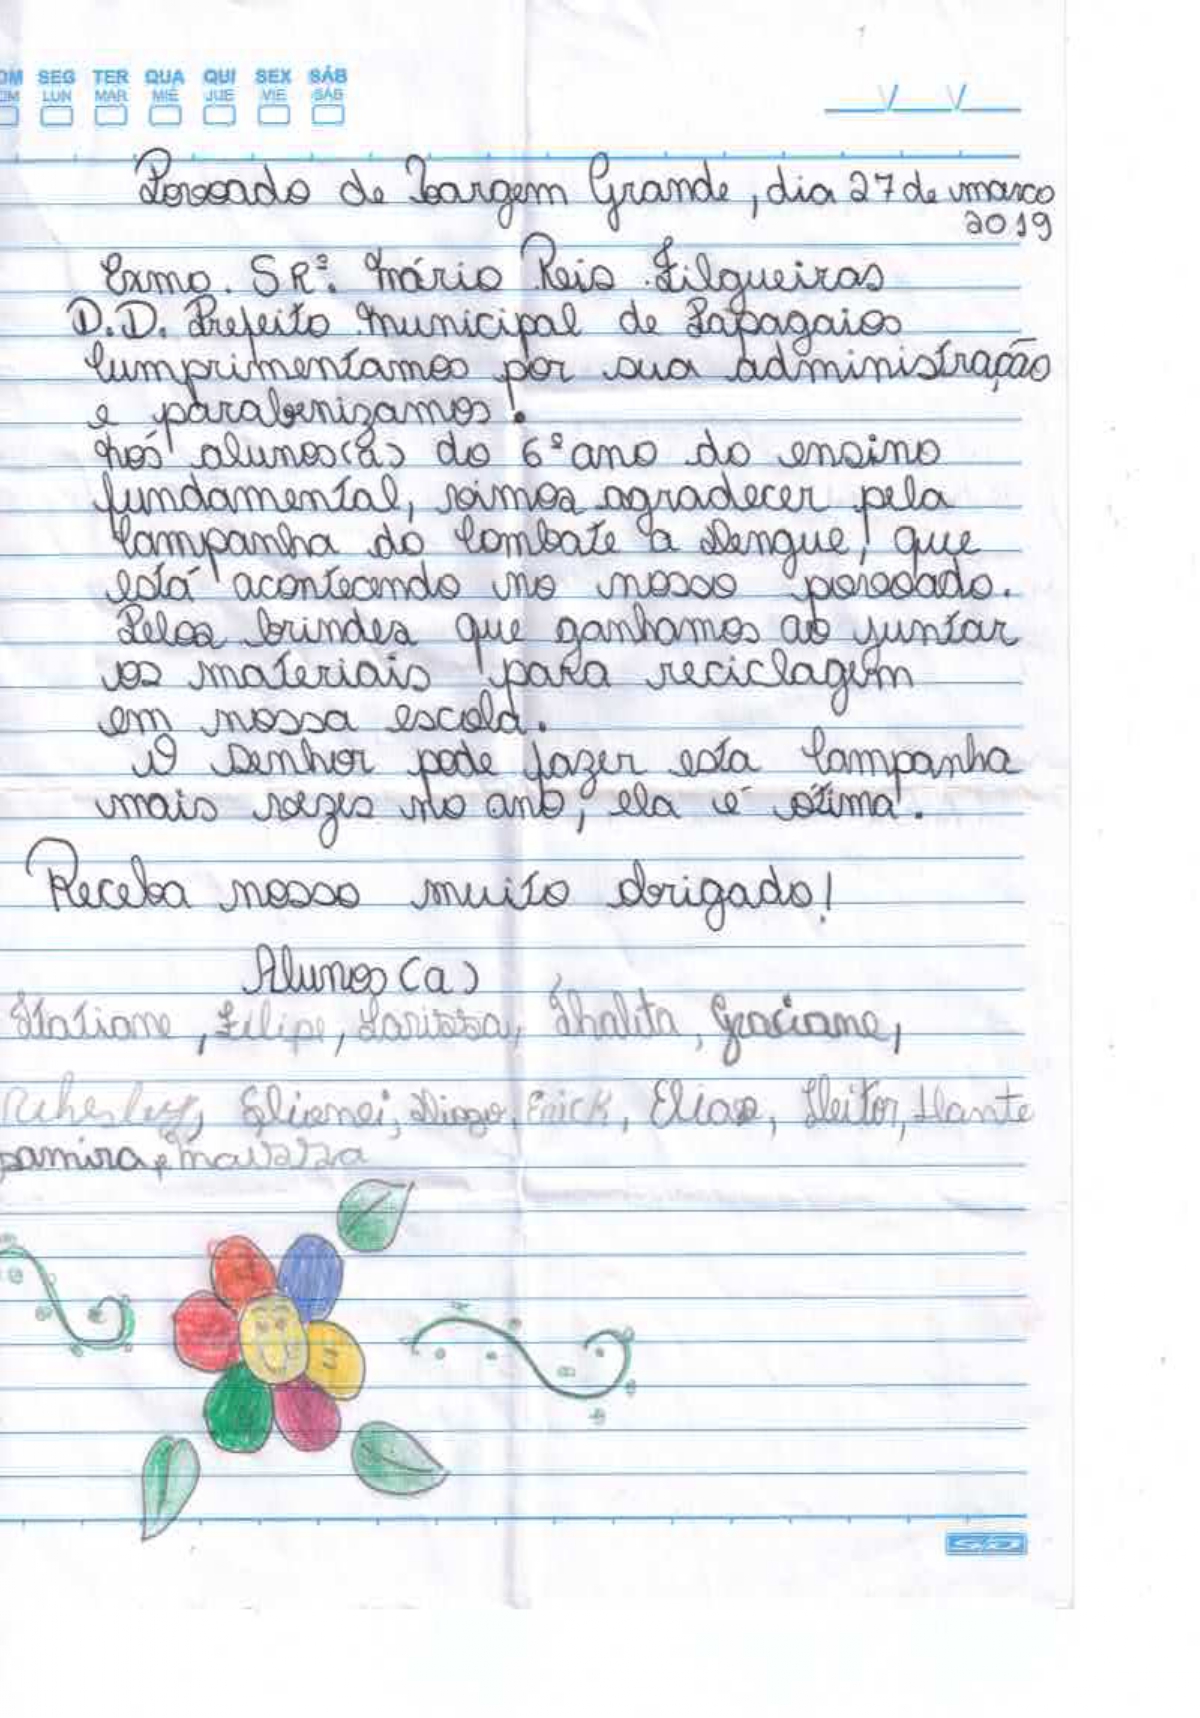 OM SEG TER QUA QUI SEX SÁB
OM LUN MAR MIÉ JUE VIE SÁB
Povoado de Vargem Grande, dia 27 de março
2019
Exmo. SRº. Mário Reis Filgueiras
D.D. Prefeito Municipal de Papagaios
Cumprimentamos por sua administração
e parabenizamos.
Nós alunos(as) do 6º ano do ensino
fundamental, vimos agradecer pela
Campanha do Combate a Dengue, que
está acontecendo no nosso povoado.
Pelos brindes que ganhamos ao juntar
os materiais para reciclagem
em nossa escola.
O Senhor pode fazer esta Campanha
mais vezes no ano, ela é ótima.
Receba nosso muito obrigado!
Alunos(a)
Tatiane, Filipe, Larissa, Thalita, Graciane,
Elienei, Diogo, Erick, Elias, Heitor, Dante
samira, e